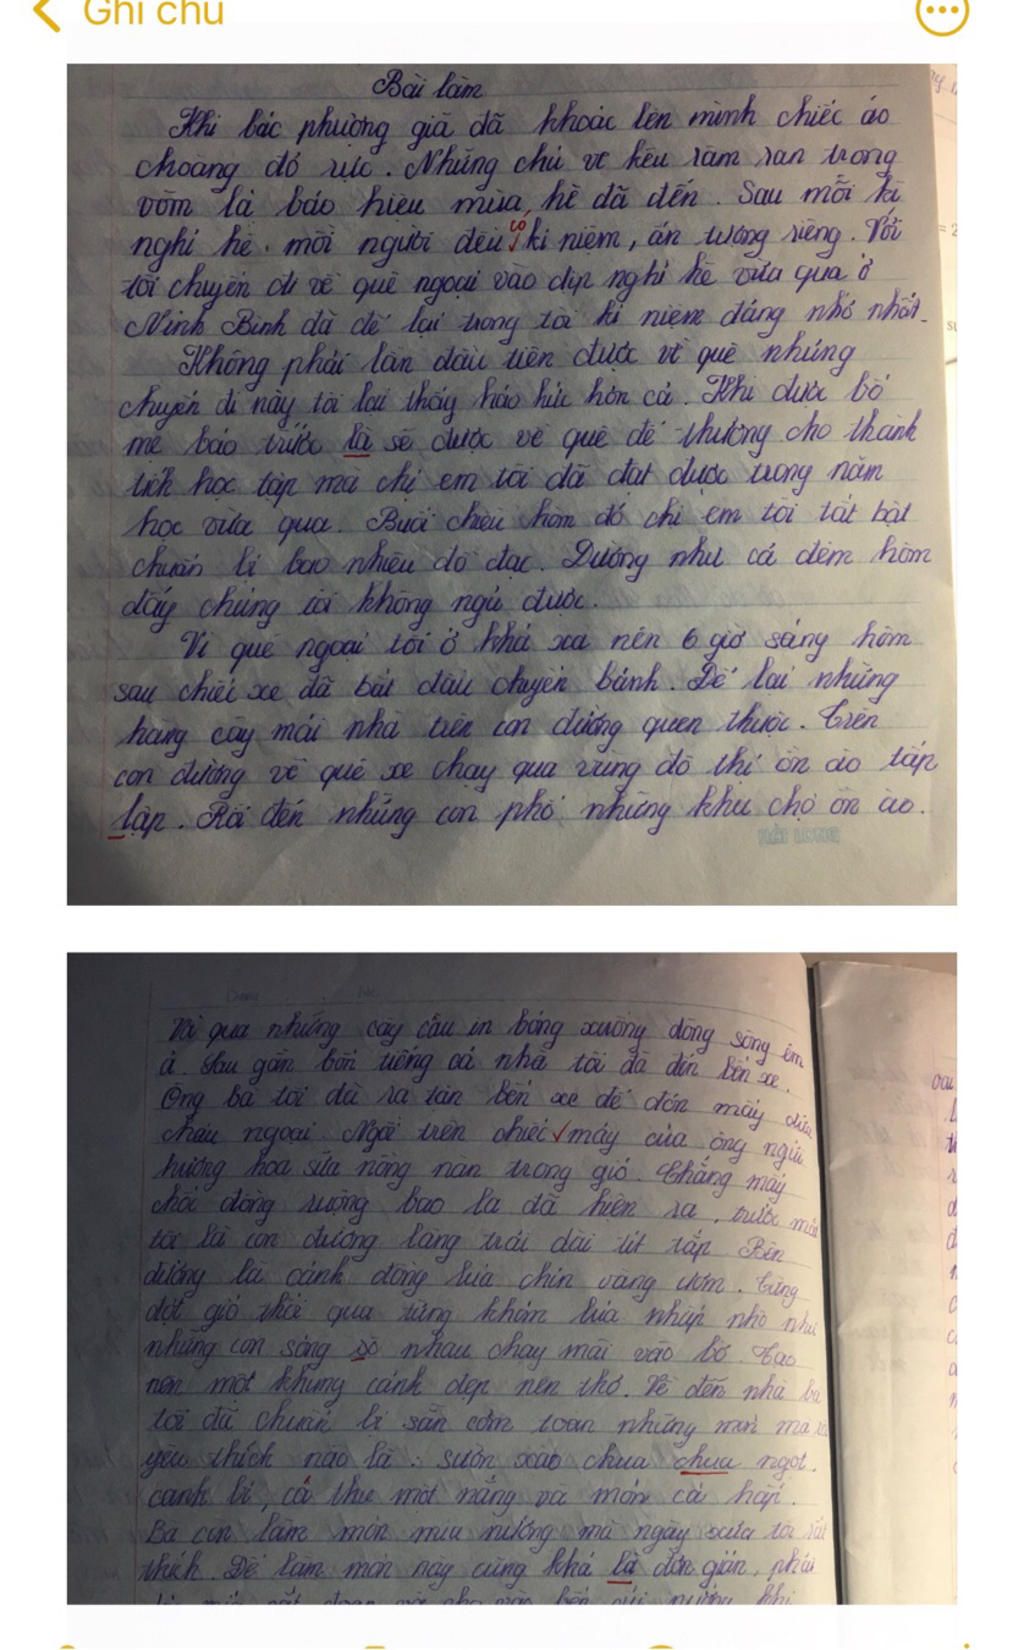 Ghi chú
Bài làm
Khi bác phượng già đã khoác lên mình chiếc áo
choàng đỏ rực. Những chú ve kêu râm ran trong
vòm lá báo hiệu mùa hè đã đến. Sau mỗi kì
nghỉ hè. mỗi người đều có kỉ niệm, ấn tượng riêng. Với
tôi chuyến đi về quê ngoại vào dịp nghỉ hè vừa qua ở
Ninh Bình đã để lại trong tôi kỉ niệm đáng nhớ nhất.
Không phải lần đầu tiên được về quê nhưng
chuyến đi này tôi lại thấy háo hức hơn cả. Khi được bố
mẹ báo trước là sẽ được về quê để thưởng cho thành
tích học tập mà chị em tôi đã đạt được trong năm
học vừa qua. Buổi chiều hôm đó chị em tôi tất bật
chuẩn bị bao nhiêu đồ đạc. Dường như cả đêm hôm
đấy chúng tôi không ngủ được.
Vì quê ngoại tôi ở khá xa nên 6 giờ sáng hôm
sau chiếc xe đã bắt đầu chuyển bánh. Để lại những
hàng cây mái nhà trên con đường quen thuộc. Trên
con đường về quê xe chạy qua vùng đô thị ồn ào tấp
lập. Rồi đến những con phố những khu chợ ồn ào.
HẢI LONG
Rồi qua những cây cầu in bóng xuống dòng sông êm
ả. Sau gần bốn tiếng cả nhà tôi đã đến bến xe.
Ông bà tôi đã ra tận bến xe để đón mấy đứa
cháu ngoại. Ngồi trên chiếc máy của ông ngửi
hương hoa sữa nồng nàn trong gió. Chẳng mấy
chốc đồng ruộng bao la đã hiện ra, trước mắt
tôi là con đường làng trải dài tít tắp. Bên
đường là cánh đồng lúa chín vàng ươm. Từng
đợt gió thổi qua từng khóm lúa nhấp nhô như
những con sóng xô nhau chạy mãi vào bờ. Tạo
nên một khung cảnh đẹp nên thơ. Về đến nhà bà
tôi đã chuẩn bị sẵn cơm toàn những món mà
yêu thích nào là: sườn xào chua chua ngọt.
canh bí, cá thu một nắng và món cá hấp.
Bà còn làm món mía nướng mà ngày xưa tôi rất
thích. Để làm món này cũng khá là đơn giản, phải